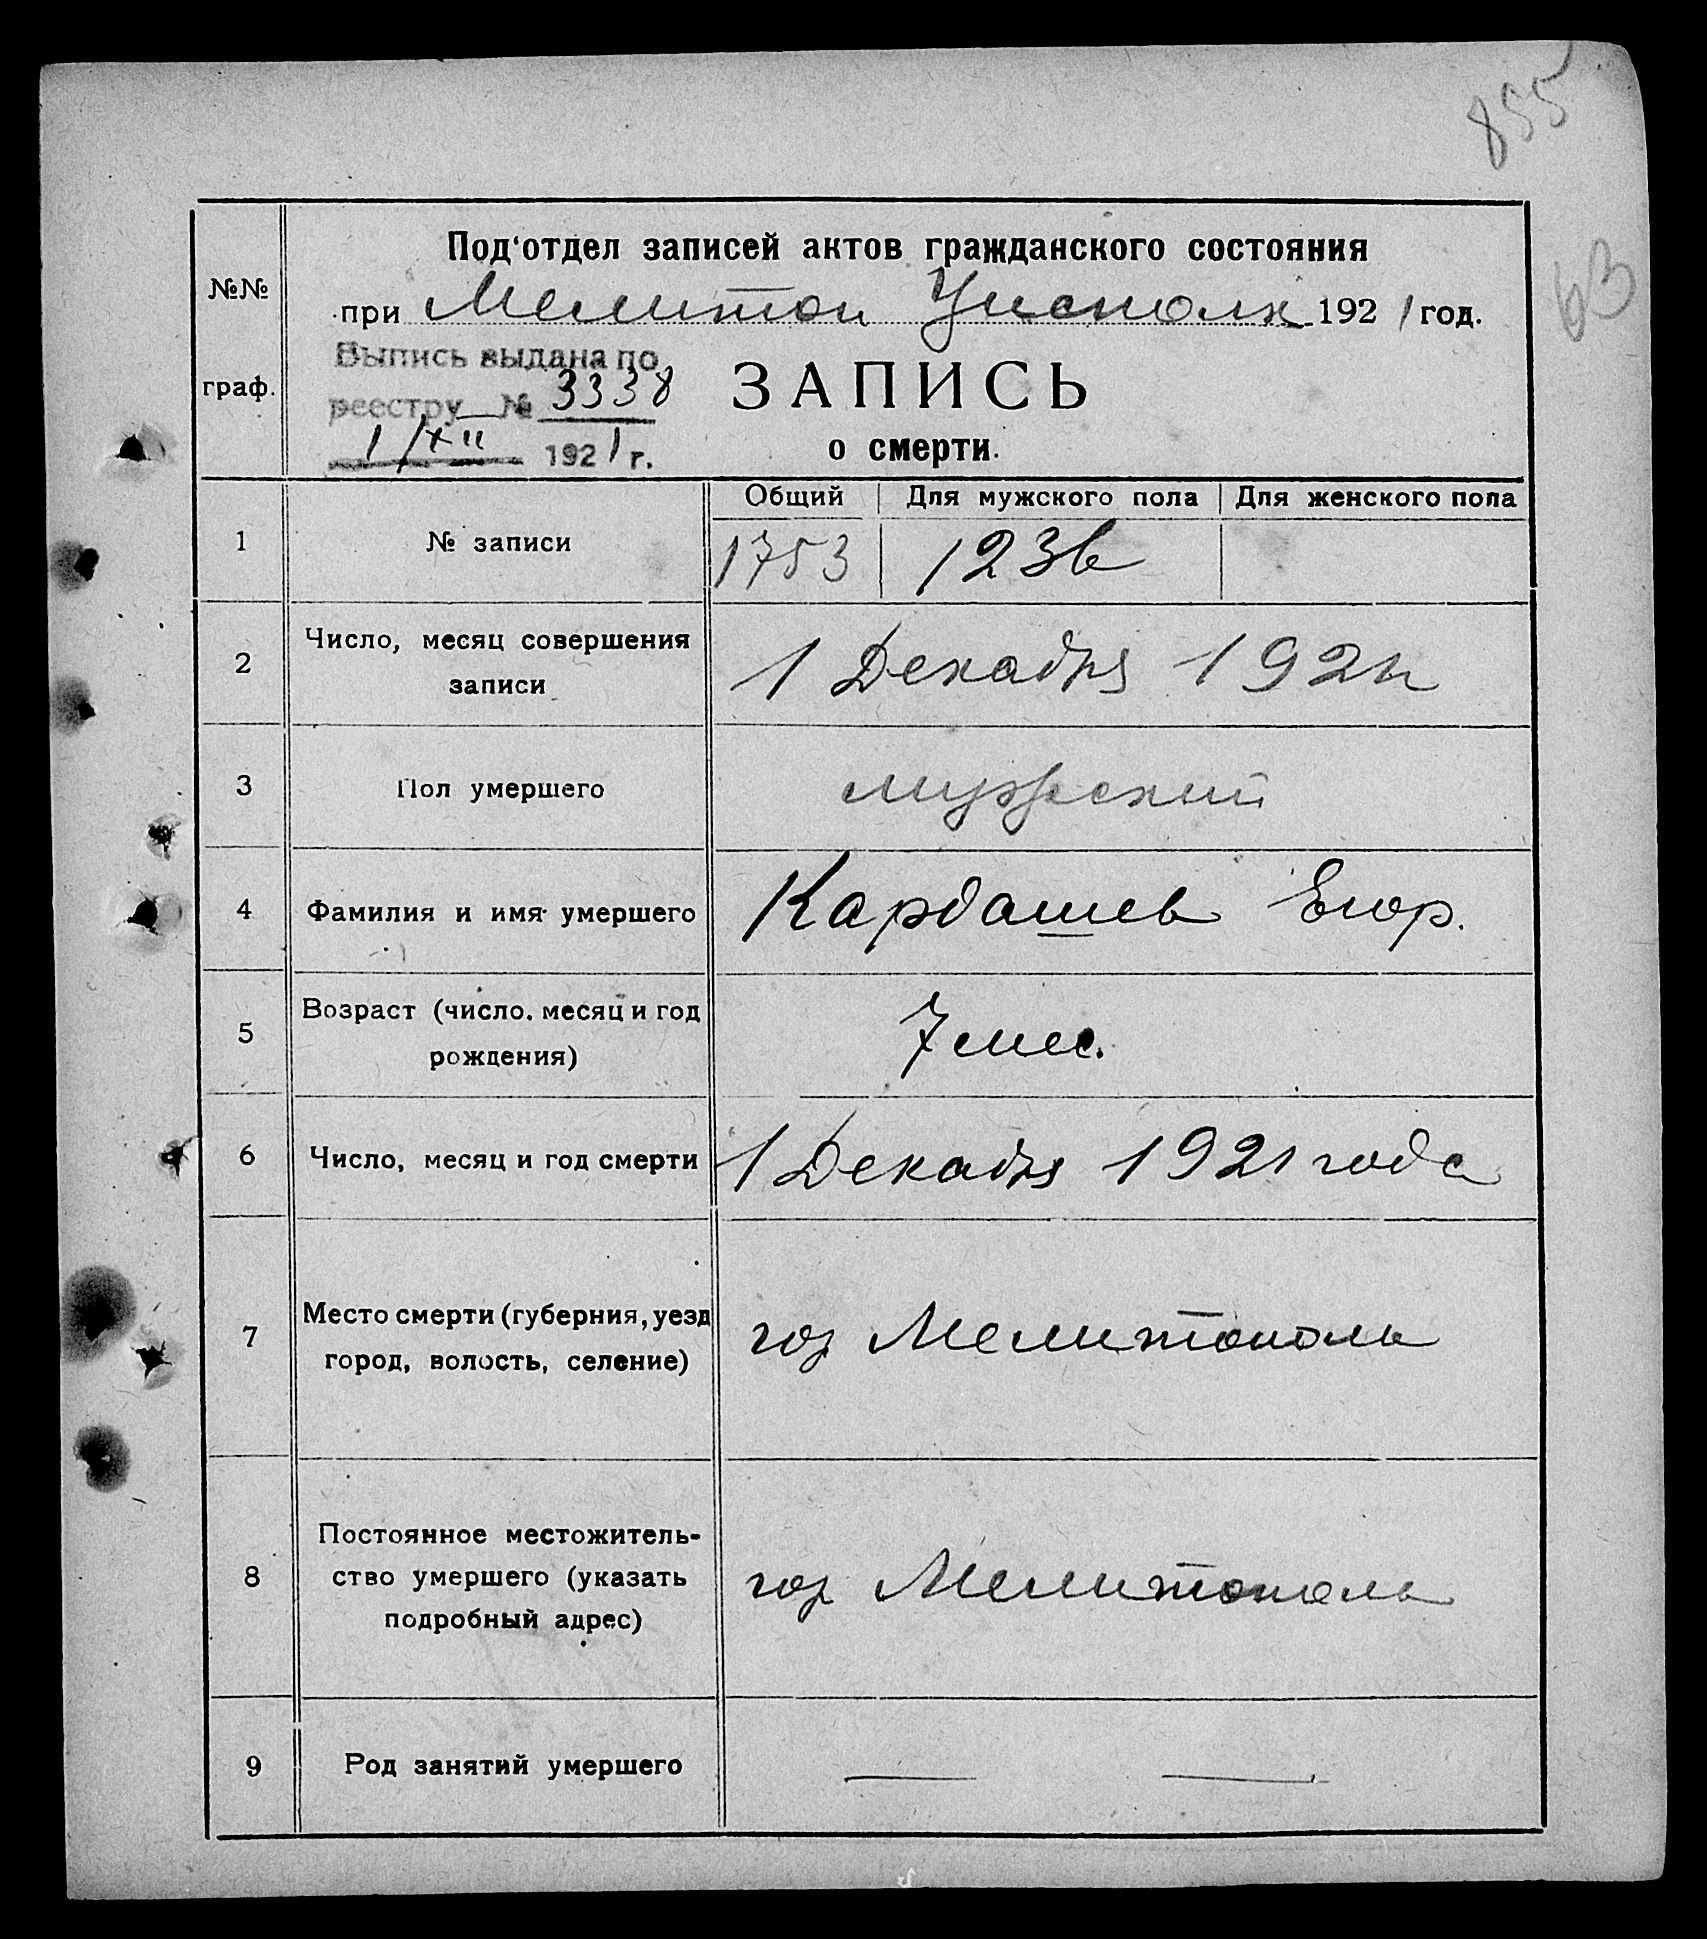 855
63
№№
граф.
Под'отдел записей актов гражданского состояния
при Мелитоп Уисполк 1921 год.
Выпись выдана по
реестру № 3338
1/XII 1921 г.
ЗАПИСЬ
о смерти.
Общий Для мужского пола Для женского пола
1 № записи 1753 1236
2 Число, месяц совершения
записи
1 Декабря 1921
3 Пол умершего мужской
4 Фамилия и имя умершего Кардашев Егор.
5 Возраст (число, месяц и год
рождения)
7 мес.
6 Число, месяц и год смерти 1 Декабря 1921 года
7 Место смерти (губерния, уезд
город, волость, селение)
гор Мелитополь
8 Постоянное местожитель-
ство умершего (указать
подробный адрес)
гор Мелитополь
9 Род занятий умершего — —